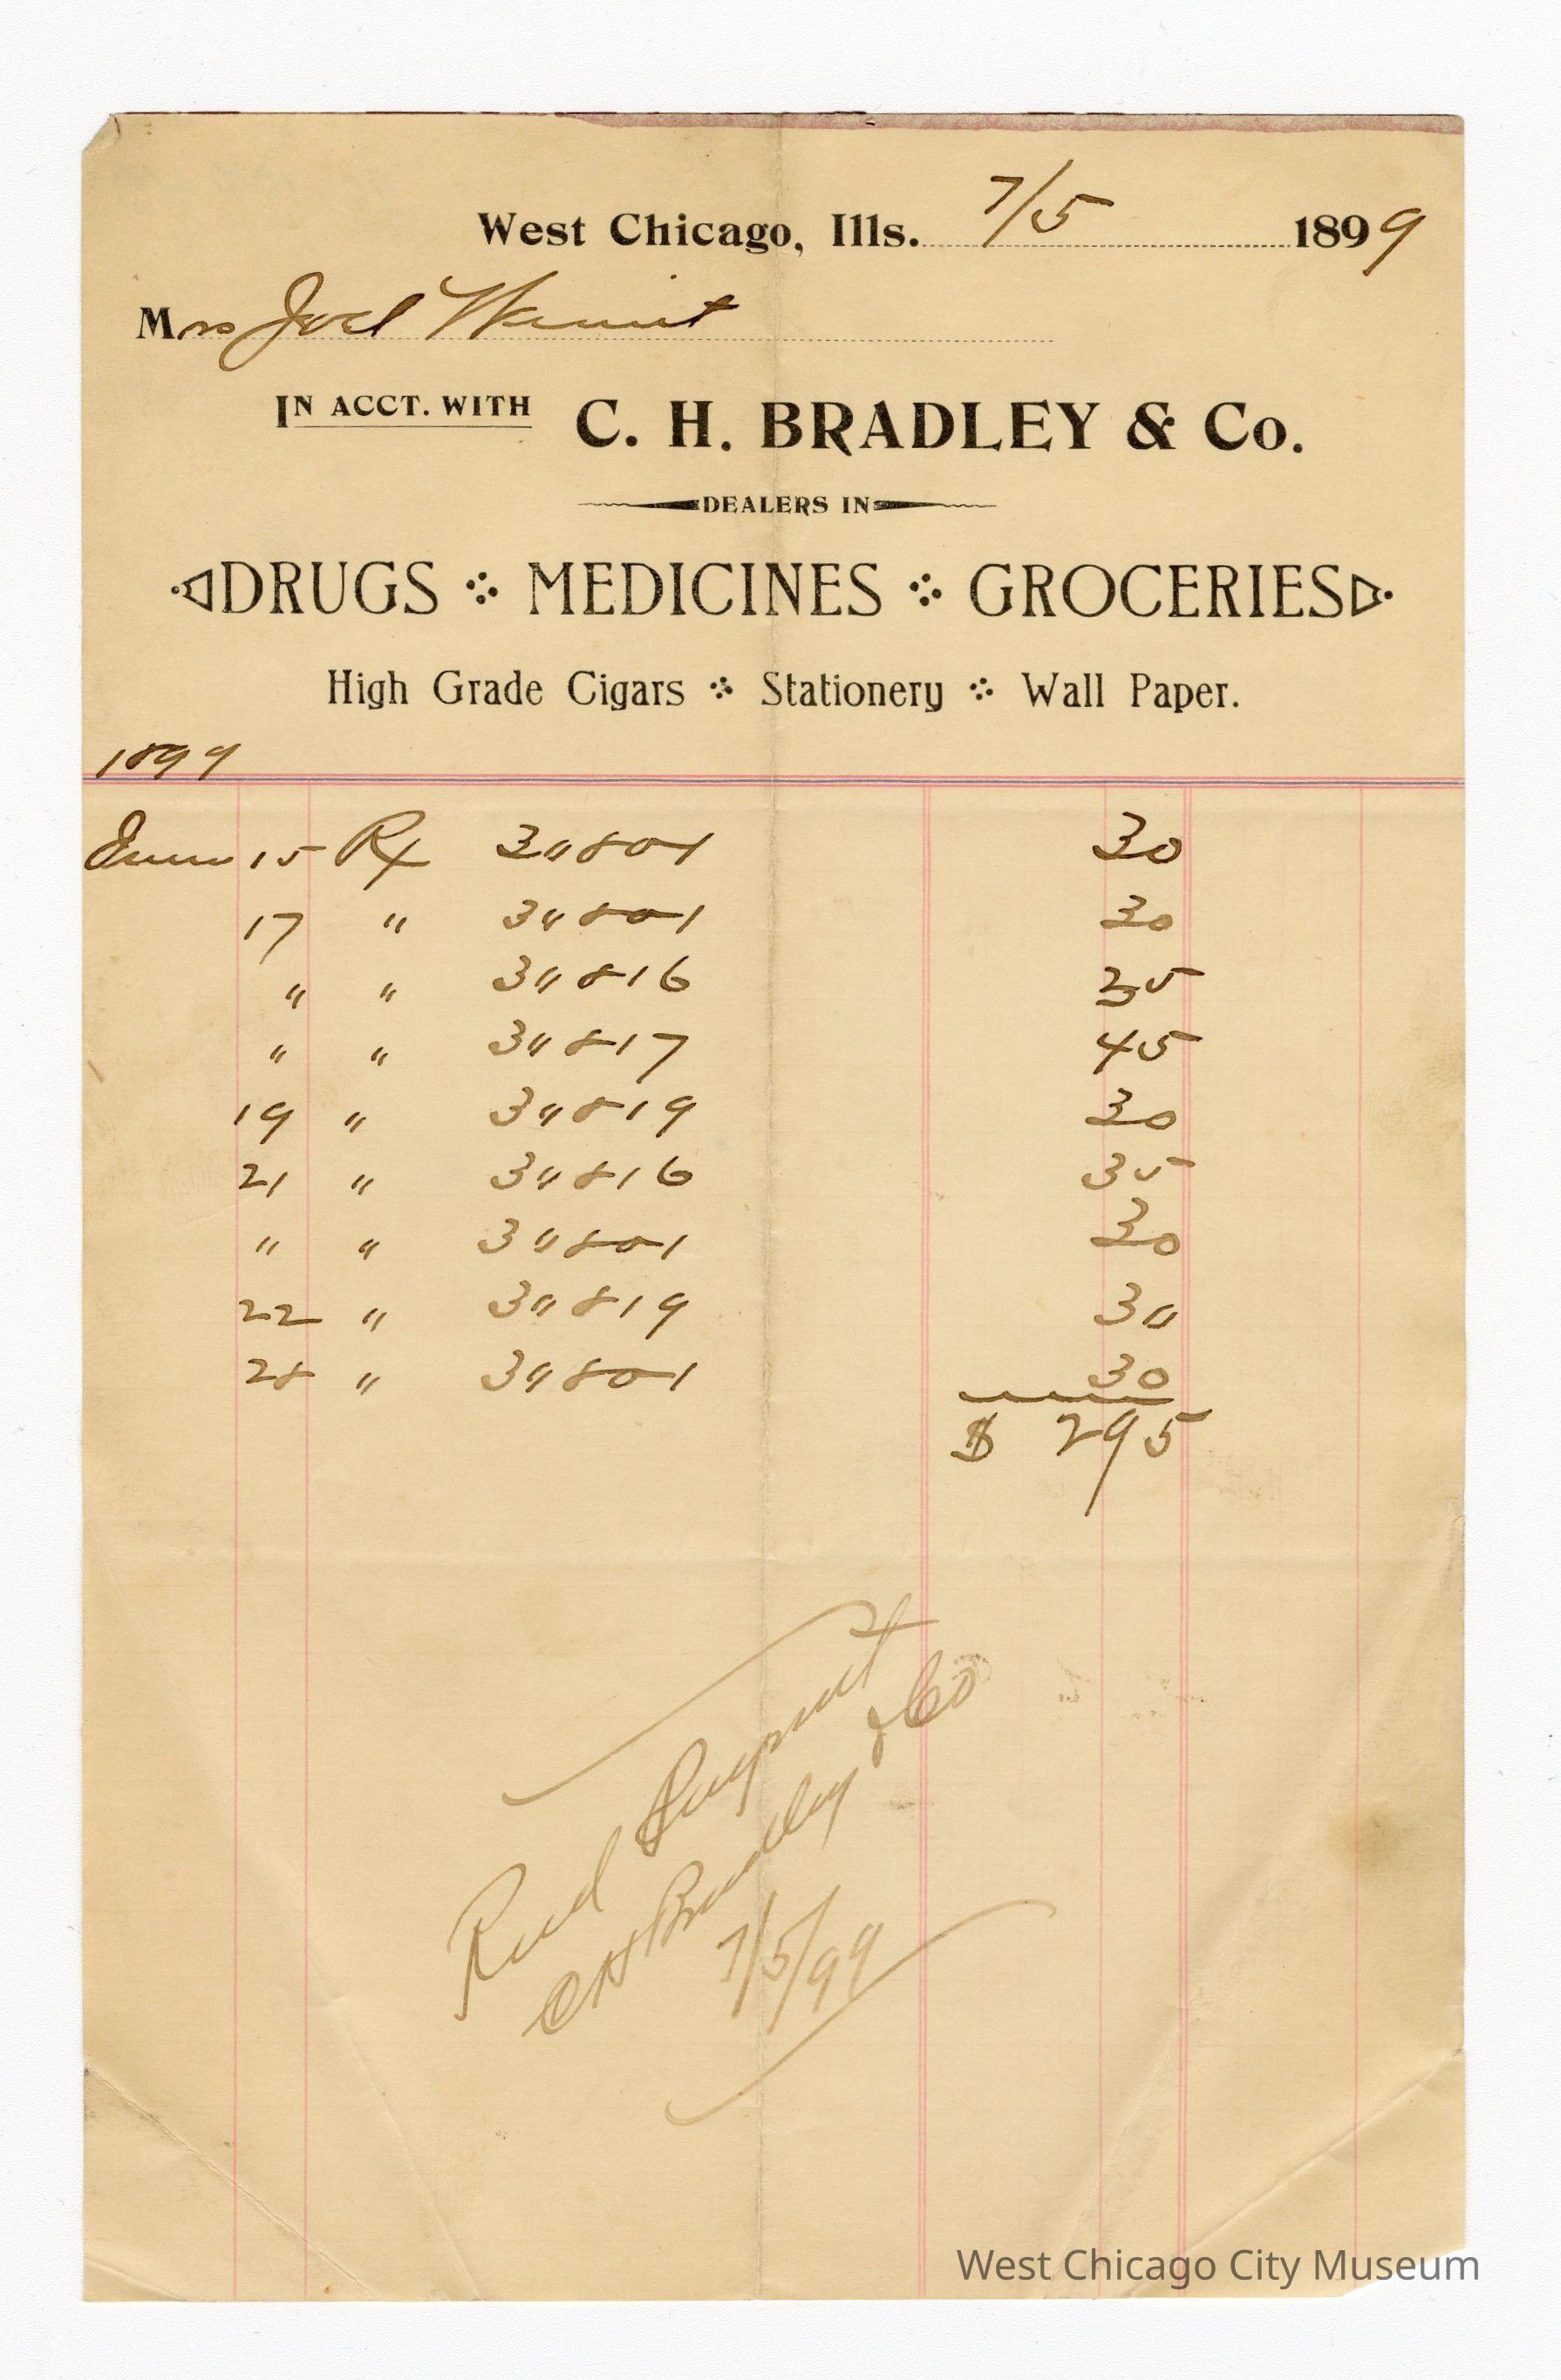 West Chicago, Ills. 7/5 1899
Mrs Joel Wiant
IN ACCT. WITH C. H. BRADLEY & Co.
DEALERS IN
DRUGS MEDICINES GROCERIES
High Grade Cigars Stationery Wall Paper.
1899
June 15 Rx 30801 30
17 " 30801 30
" " 30816 35
" " 30817 45
19 " 30819 30
21 " 30816 35
" " 30801 30
22 " 30819 30
28 " 30801 30
$ 295
Recd Payment
CH Bradley & Co
7/5/99
West Chicago City Museum